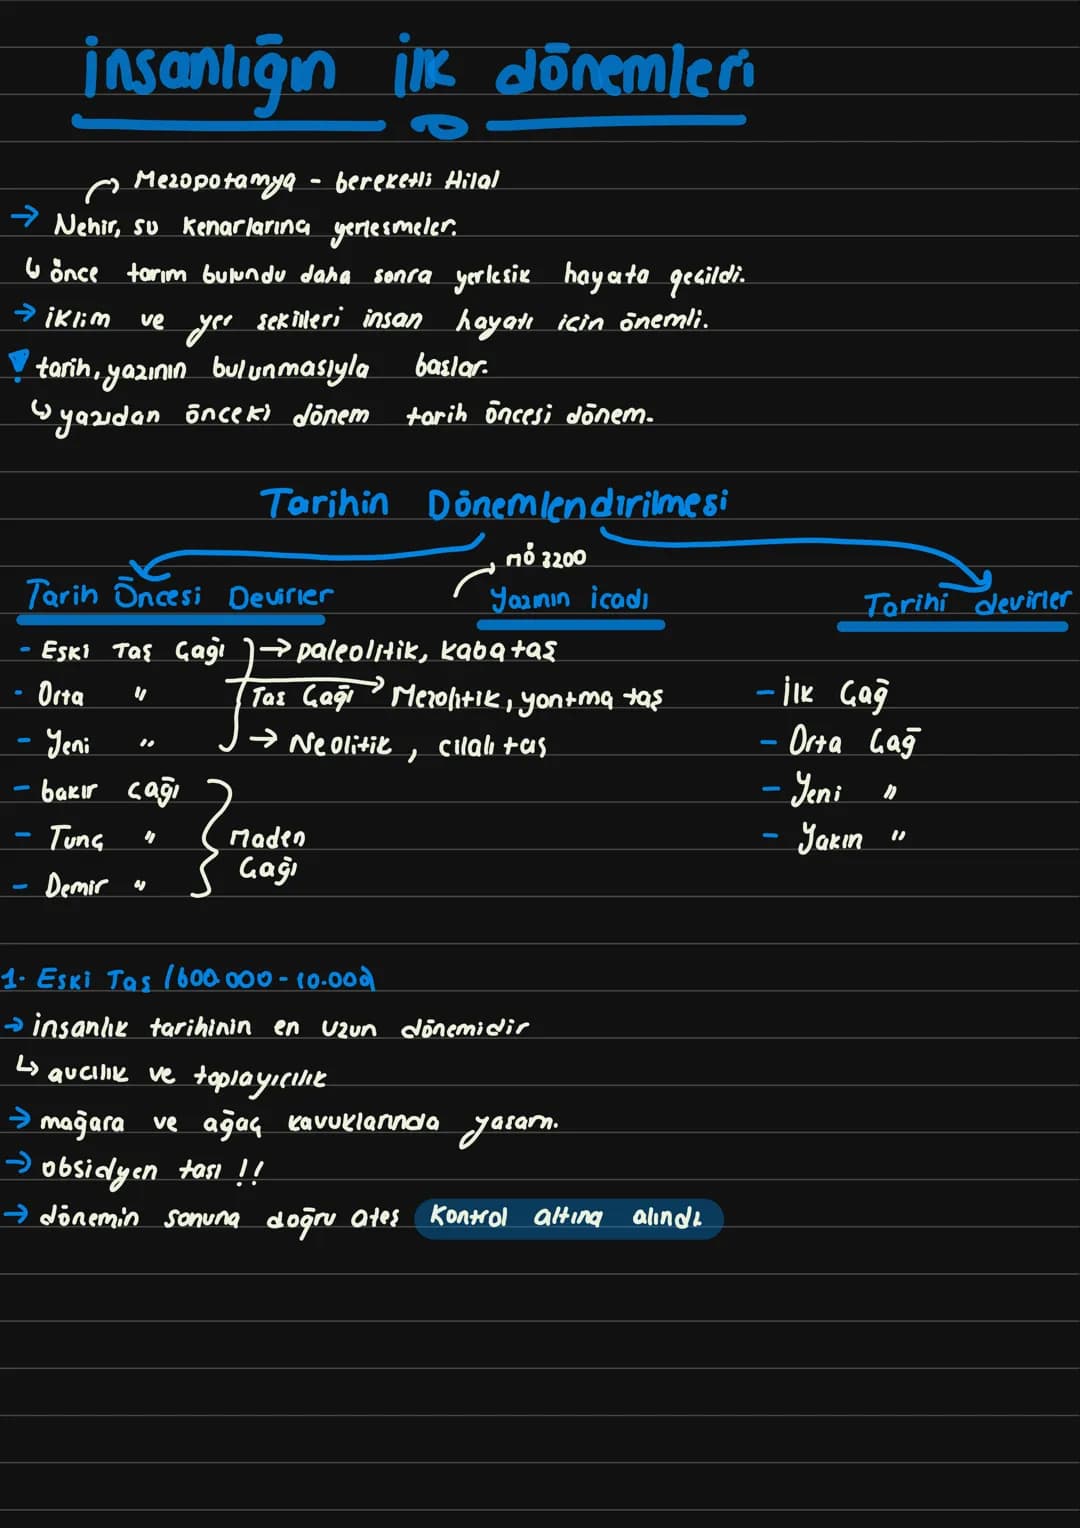 insanlığın ilk dönemleri
Mezopotamya - bereketli Hilal
→ Nehir, su kenarlarına yerlesmeler.
↳ önce tarım bulundu daha sonra yerlesik hayata geçildi.
→ iklim ve yer sekilleri insan hayatı icin önemli.
! tarih, yazının bulunmasıyla baslar.
↳ yazıdan önceki dönem tarih öncesi dönem.
Tarihin Dönemlendirilmesi
MÖ 3200
Tarih Öncesi Devirler Yazının icadı Tarihi devirler
- Eski Taş Çağı → paleolitik, kaba taş
- Orta " Tas Çağı → Mezolitik, yontma taş - İlk Çağ
- Yeni " → Neolitik, cılalı tas - Orta Çağ
- bakır cağı - Yeni "
- Tunç " Maden - Yakın "
Çağı
- Demir "
1. Eski Taş (600.000 - 10.000)
→ insanlık tarihinin en uzun dönemidir
↳ avcılık ve toplayıcılık
→ mağara ve ağaç kavuklarında yasam.
→ obsidyen tası !!
→ dönemin sonuna doğru ates kontrol altına alındı.